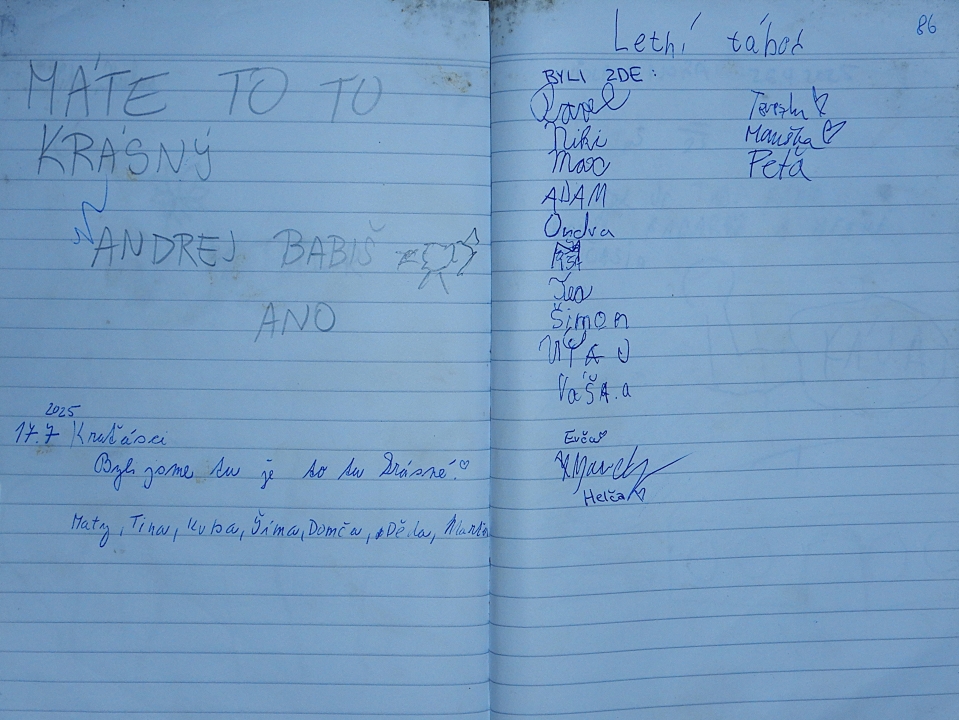 MÁTE TO TU
KRÁSNÝ
ANDREJ BABIŠ
ANO
2025
17.7 Kraťásci
Byli jsme tu je to tu krásné!
Maty, Tina, Kuba, Šíma, Domča, Děda, Martin
86
Letní tábor
BYLI ZDE:
Pavel
Niki
Max
ADAM
Ondra
Tea
Šimon
VÁŠA.a
Terezka
Maruška
Peťa
Evča
Helča